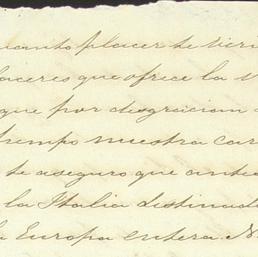 uanto placer te vien
laceres que ofrece la v
que por desgracia n
tiempo nuestra car
te aseguro que antes
la Italia destinad
la Europa entera. N